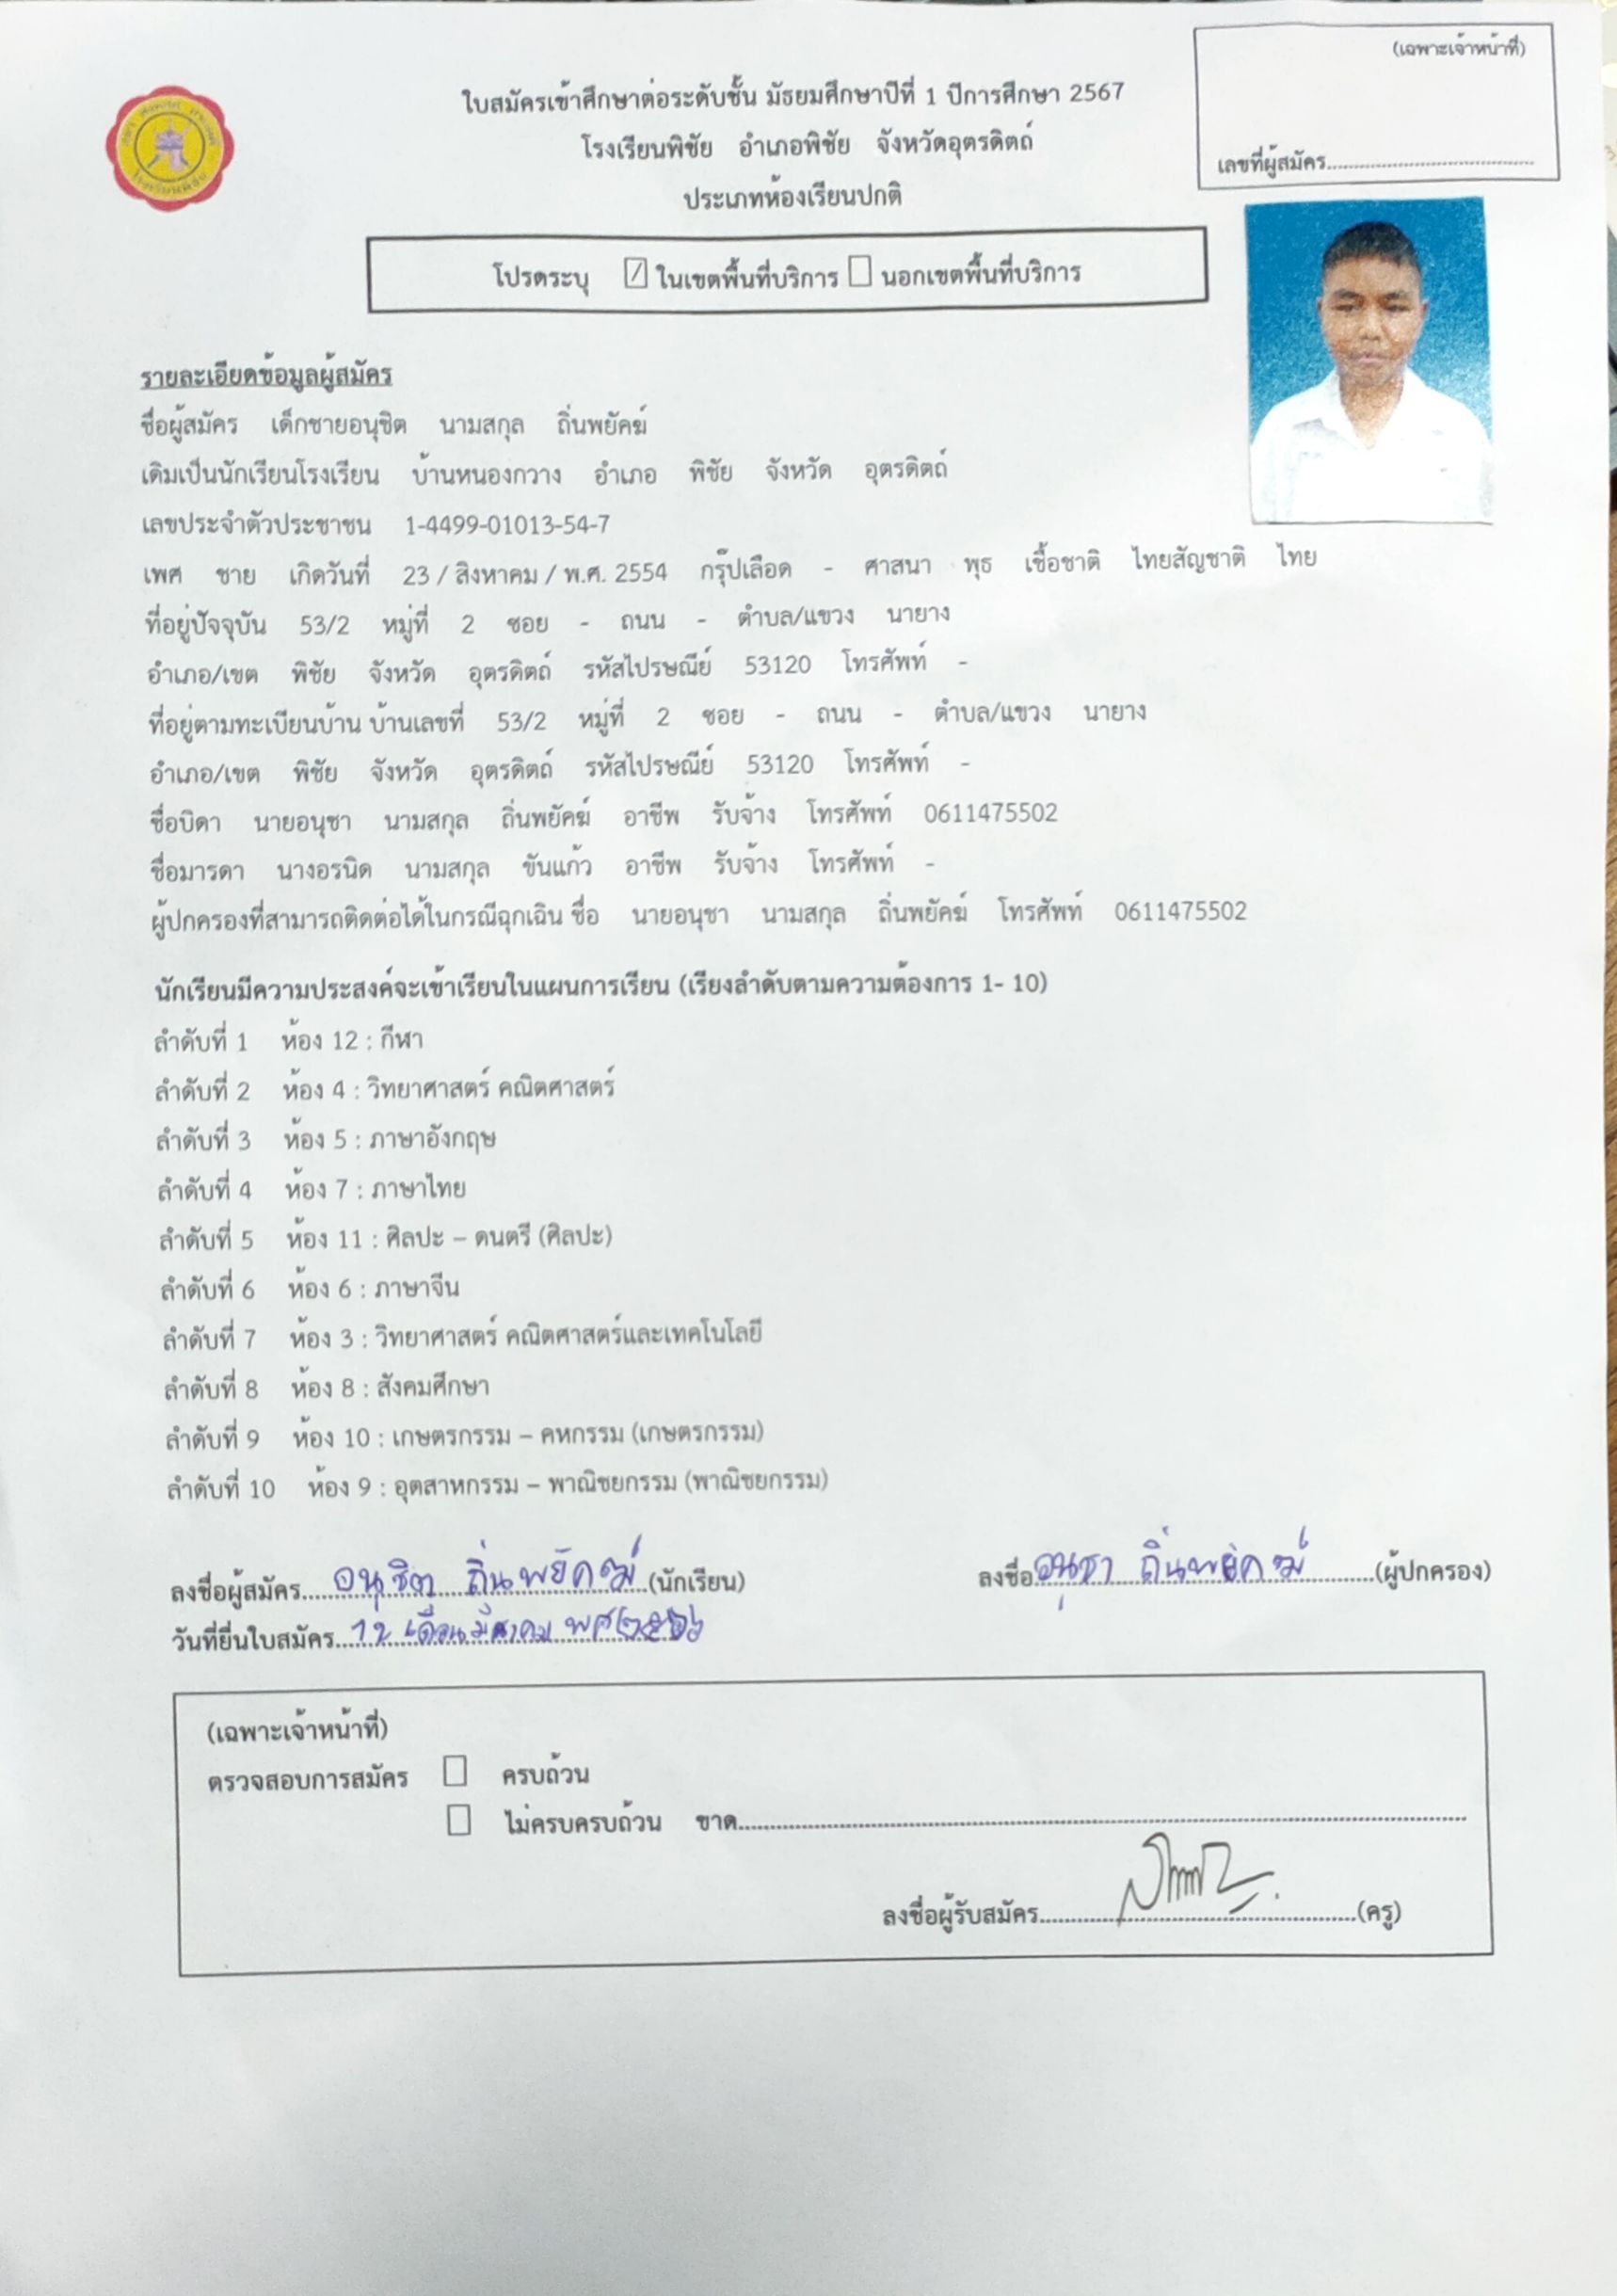 (เฉพาะเจ้าหน้าที่)
เลขที่ผู้สมัคร
ใบสมัครเข้าศึกษาต่อระดับชั้น มัธยมศึกษาปีที่ 1 ปีการศึกษา 2567
โรงเรียนพิชัย อำเภอพิชัย จังหวัดอุตรดิตถ์
ประเภทห้องเรียนปกติ
โปรดระบุ ในเขตพื้นที่บริการ นอกเขตพื้นที่บริการ
รายละเอียดข้อมูลผู้สมัคร
ชื่อผู้สมัคร เด็กชายอนุชิต นามสกุล ถิ่นพยัคฆ์
เดิมเป็นนักเรียนโรงเรียน บ้านหนองกวาง อำเภอ พิชัย จังหวัด อุตรดิตถ์
เลขประจำตัวประชาชน 1-4499-01013-54-7
เพศ ชาย เกิดวันที่ 23 / สิงหาคม / พ.ศ. 2554 กรุ๊ปเลือด - ศาสนา พุธ เชื้อชาติ ไทยสัญชาติ ไทย
ที่อยู่ปัจจุบัน 53/2 หมู่ที่ 2 ซอย - ถนน - ตำบล/แขวง นายาง
อำเภอ/เขต พิชัย จังหวัด อุตรดิตถ์ รหัสไปรษณีย์ 53120 โทรศัพท์ -
ที่อยู่ตามทะเบียนบ้าน บ้านเลขที่ 53/2 หมู่ที่ 2 ซอย - ถนน - ตำบล/แขวง นายาง
อำเภอ/เขต พิชัย จังหวัด อุตรดิตถ์ รหัสไปรษณีย์ 53120 โทรศัพท์ -
ชื่อบิดา นายอนุชา นามสกุล ถิ่นพยัคฆ์ อาชีพ รับจ้าง โทรศัพท์ 0611475502
ชื่อมารดา นางอรนิด นามสกุล ขันแก้ว อาชีพ รับจ้าง โทรศัพท์ -
ผู้ปกครองที่สามารถติดต่อได้ในกรณีฉุกเฉิน ชื่อ นายอนุชา นามสกุล ถิ่นพยัคฆ์ โทรศัพท์ 0611475502
นักเรียนมีความประสงค์จะเข้าเรียนในแผนการเรียน (เรียงลำดับตามความต้องการ 1- 10)
ลำดับที่ 1 ห้อง 12 : กีฬา
ลำดับที่ 2 ห้อง 4 : วิทยาศาสตร์ คณิตศาสตร์
ลำดับที่ 3 ห้อง 5 : ภาษาอังกฤษ
ลำดับที่ 4 ห้อง 7 : ภาษาไทย
ลำดับที่ 5 ห้อง 11 : ศิลปะ – ดนตรี (ศิลปะ)
ลำดับที่ 6 ห้อง 6 : ภาษาจีน
ลำดับที่ 7 ห้อง 3 : วิทยาศาสตร์ คณิตศาสตร์และเทคโนโลยี
ลำดับที่ 8 ห้อง 8 : สังคมศึกษา
ลำดับที่ 9 ห้อง 10 : เกษตรกรรม – คหกรรม (เกษตรกรรม)
ลำดับที่ 10 ห้อง 9 : อุตสาหกรรม – พาณิชยกรรม (พาณิชยกรรม)
ลงชื่อผู้สมัคร อนุชิต ถิ่นพยัคฆ์ (นักเรียน) ลงชื่อ อนุชา ถิ่นพยัคฆ์ (ผู้ปกครอง)
วันที่ยื่นใบสมัคร 12 เดือน มีนาคม พศ
(เฉพาะเจ้าหน้าที่)
ตรวจสอบการสมัคร ครบถ้วน
ไม่ครบครบถ้วน ขาด
ลงชื่อผู้รับสมัคร (ครู)